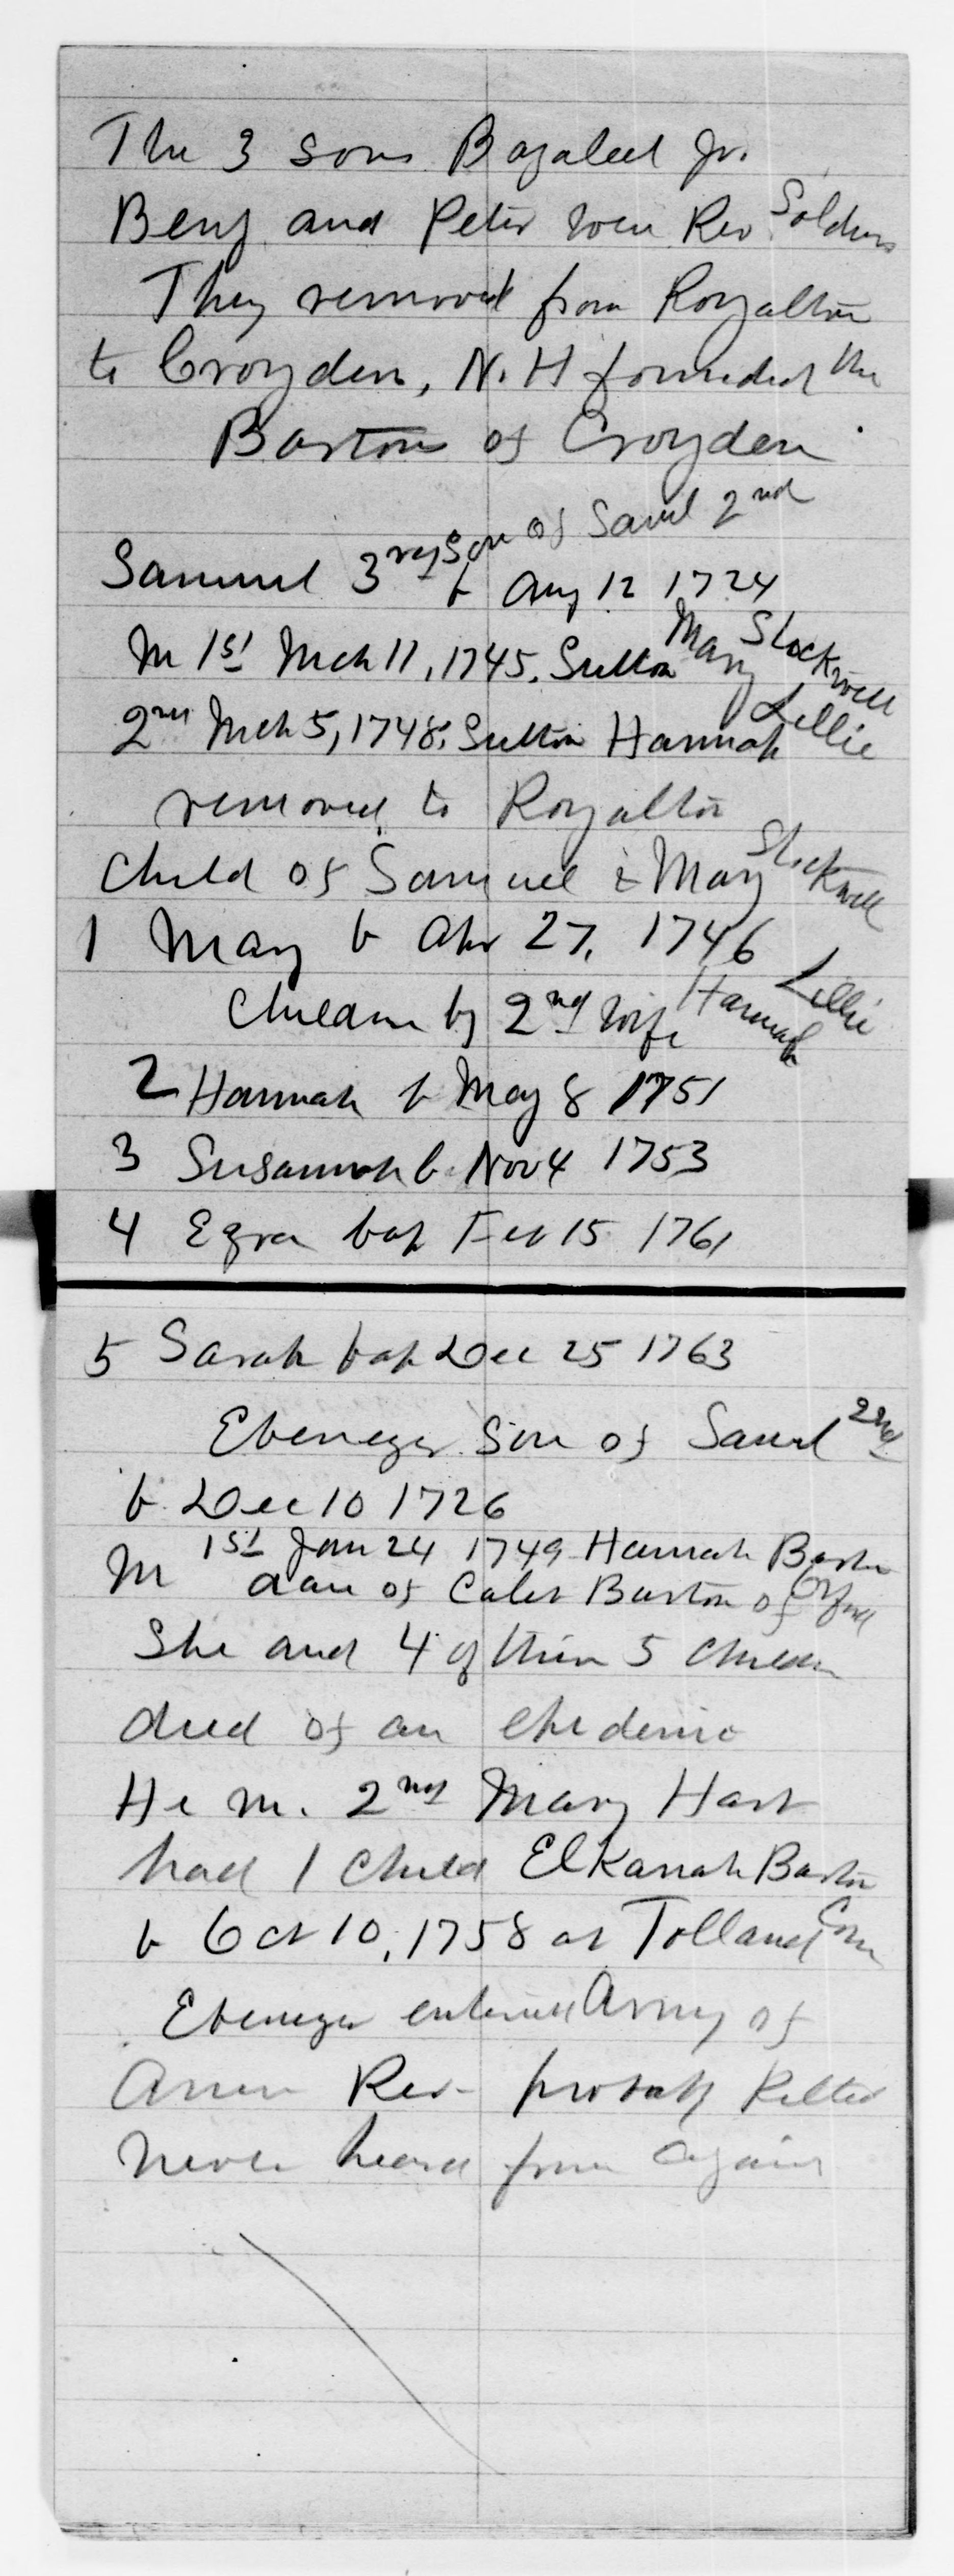 The 3 sons Bazaleel Jr.
Benj and Peter were Rev Soldiers
They removed from Royalton
to Croyden, N. H founded the
Bartons of Croyden
Samuel 3rd Son of Saml 2nd
b Aug 12 1724
M 1st Mch 11, 1745. Sutton Mary Stockwell
2nd Mch 5, 1748. Sutton Hannah Lillie
removed to Royalton
Child of Samuel & Mary Stockwell
1 Mary b Apr 27, 1746
Children by 2nd wife Hannah Lillie
2 Hannah b May 8 1751
3 Susannah b Nov 4 1753
4 Ezra bap Feb 15 1761
5 Sarah bap Dec 25 1763
Ebenezer Son of Saml 2nd
b Dec 10 1726
M 1st Jan 24 1749 Hannah Barton
dau of Caleb Barton of Oxford
She and 4 of their 5 children
died of an epidemic
He m. 2nd Mary Hart
had 1 Child Elkanah Barton
b Oct 10, 1758 at Tolland Conn
Ebenezer entered Army of
Amer Rev - probably killed
never heard from again